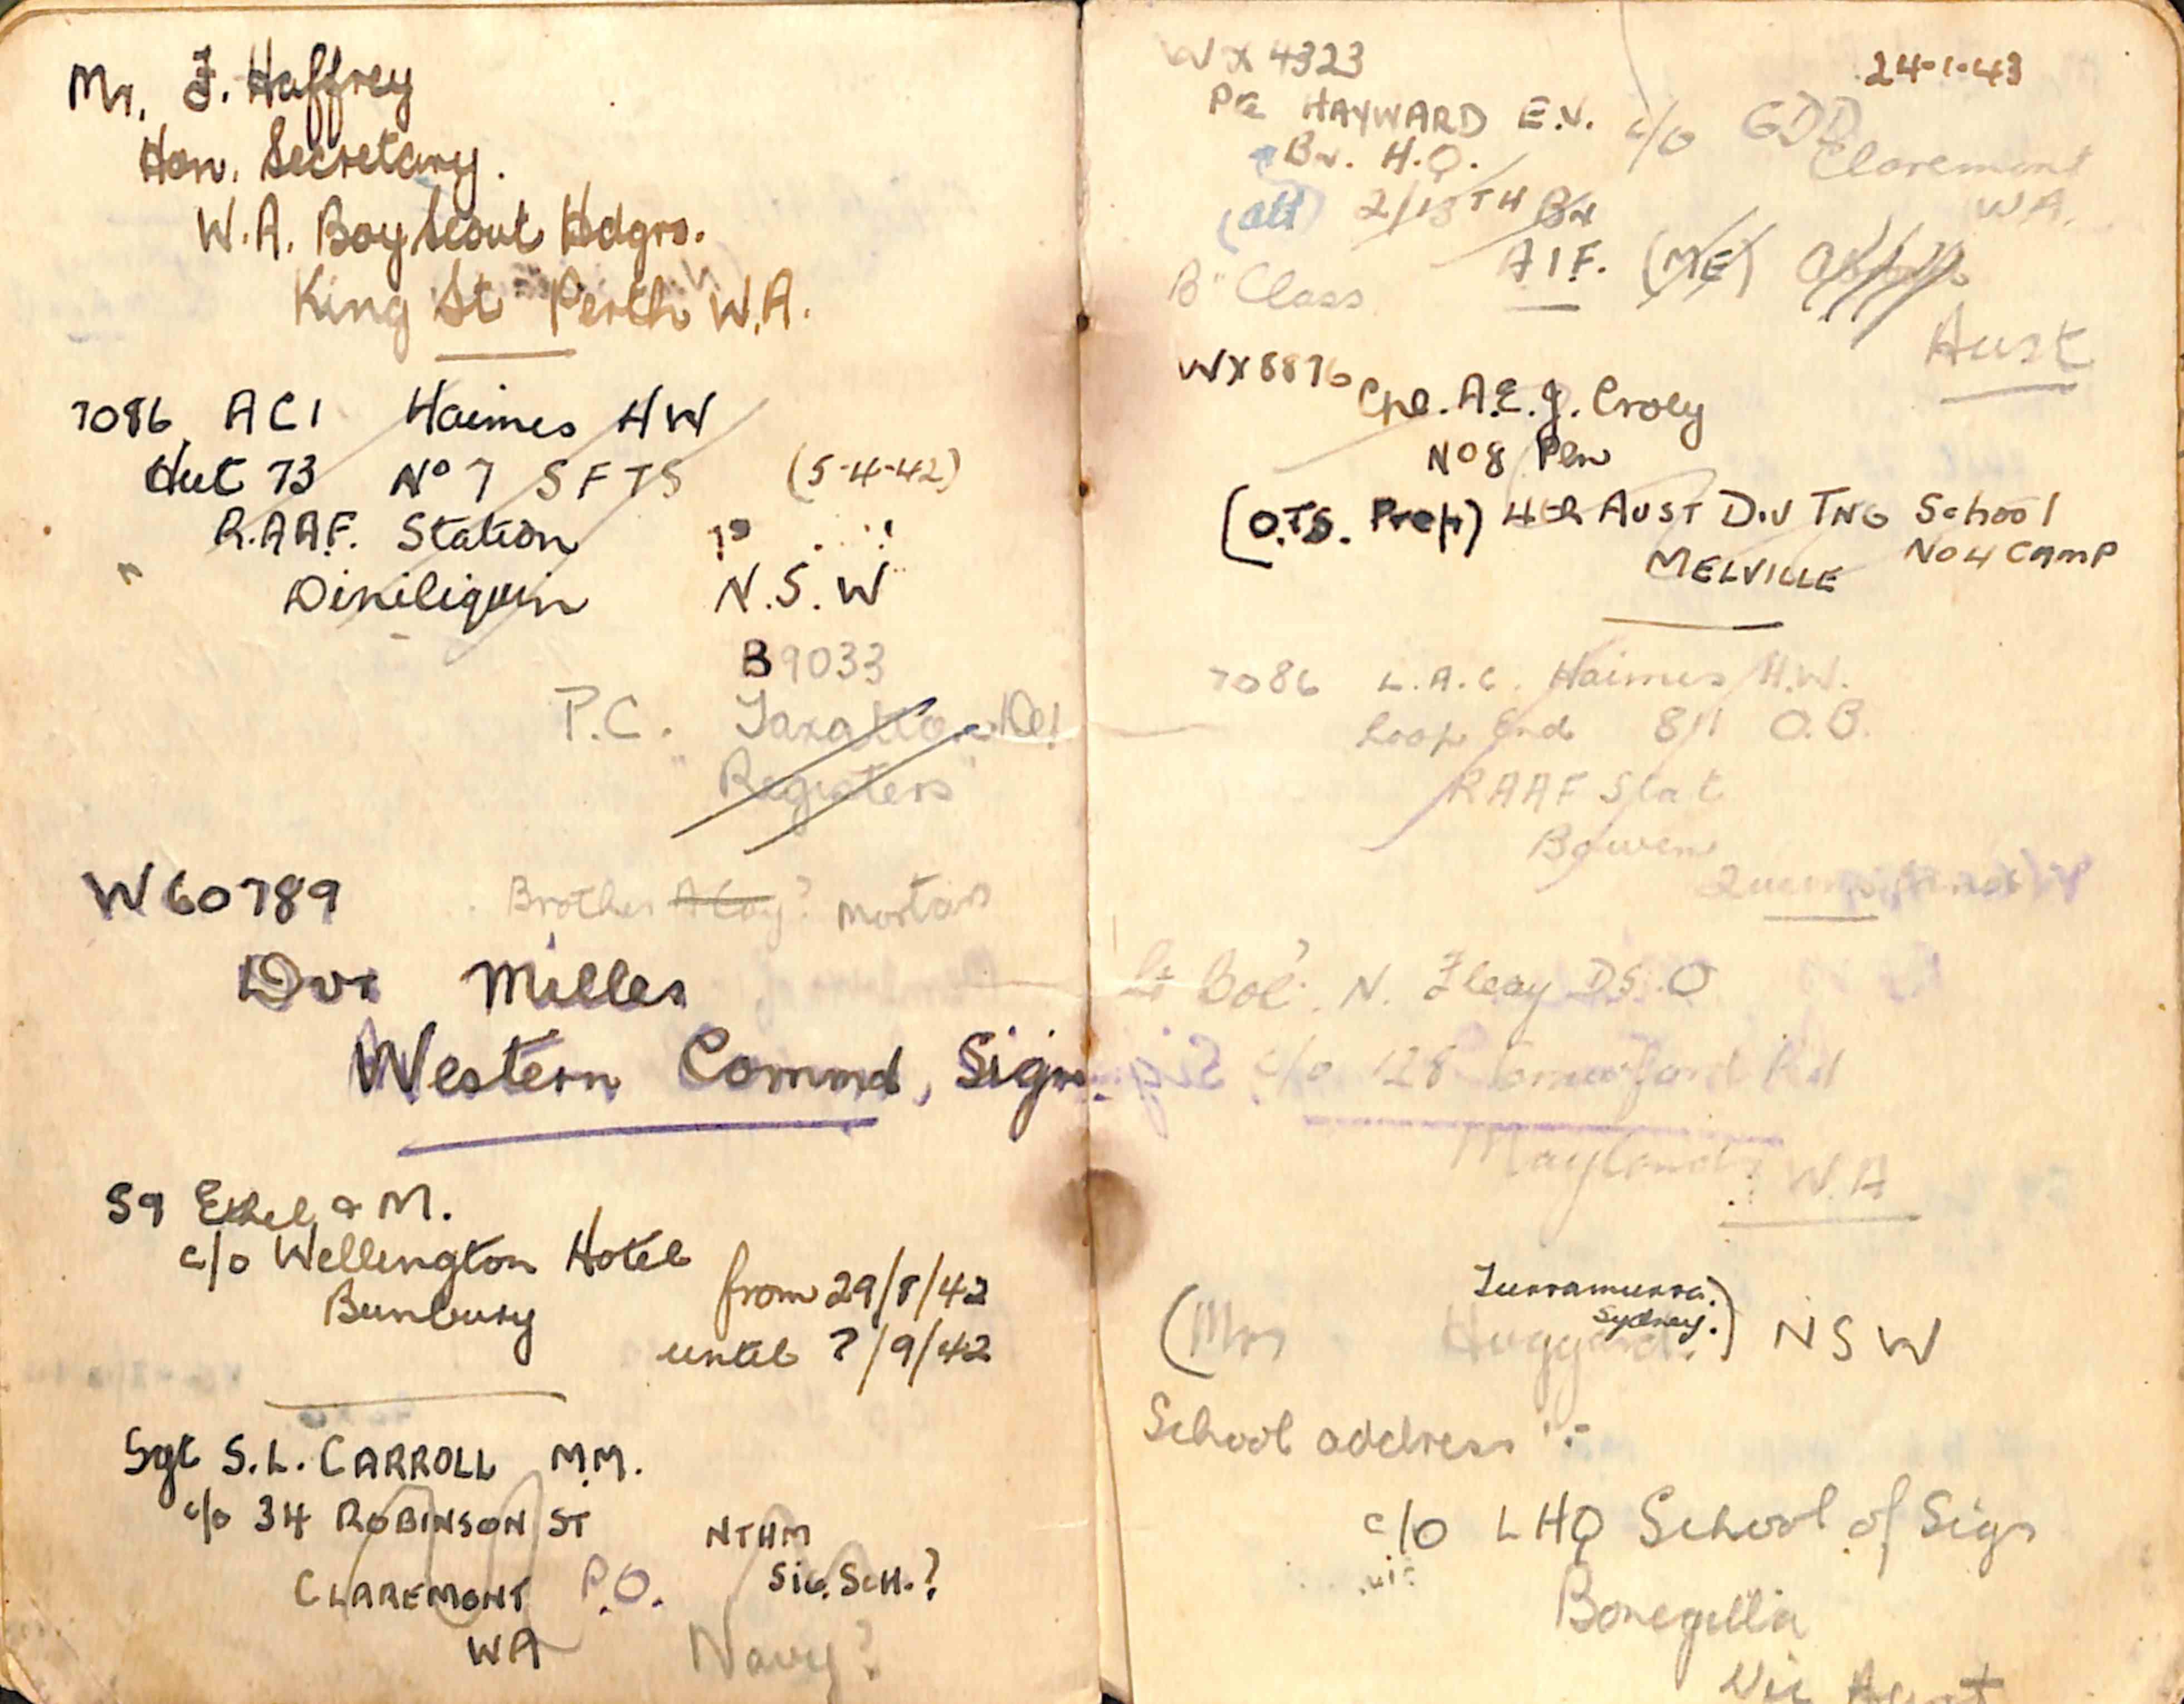 Mr. F. Haffrey
Hon. Secretary.
W.A. Boy Scout Hdqrs.
King St Perth W.A.
7086 AC1 Haimes HW
Hut 73 No 7 SFTS (5-4-42)
R.A.A.F. Station
Diniliquin N.S.W
B9033
P.C. Taxation
"Registers"
W60789 Brother ? mortars
Dvr Milles
Western Commd, Sigs
S9 Ethel & M.
c/o Wellington Hotel
Bunbury
from 29/8/42
until ?/9/42
Sgt S.L. CARROLL M.M.
c/o 34 ROBINSON ST
CLAREMONT P.O.
WA
NTHM
SIG. SCH.?
Navy?
24-1-43
WX 4323
Pte HAYWARD E.V. c/o GDD
Claremont
WA.
Bn. H.Q.
(att) 2/13TH Bn
AIF. (ME)
Aust
B" Class
WX8876 Cpl. A.E.J. Croly
No 8 Pln
(O.T.S. Prep) 4th AUST DIV TNG School
No 4 CAMP
MELVILLE
7086 L.A.C. Haimes H.W.
Loop End 811 O.B.
RAAF Stat
Bowen
Queensland
Lt Col. N. Fleay D.S.O
c/o 128 Crawford Rd
Maylands W.A
Turramurra.
Sydney.
(Mrs Huggard.) NSW
School address :-
c/o LHQ School of Sigs
Bonegilla
Vic Aust